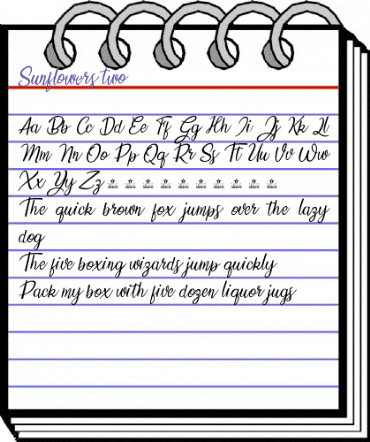 Sunflowers two
Aa Bb Cc Dd Ee Ff Gg Hh Ii Jj Kk Ll
Mm Nn Oo Pp Qq Rr Ss Tt Uu Vv Ww
Xx Yy Zz
The quick brown fox jumps over the lazy
dog
The five boxing wizards jump quickly
Pack my box with five dozen liquor jugs